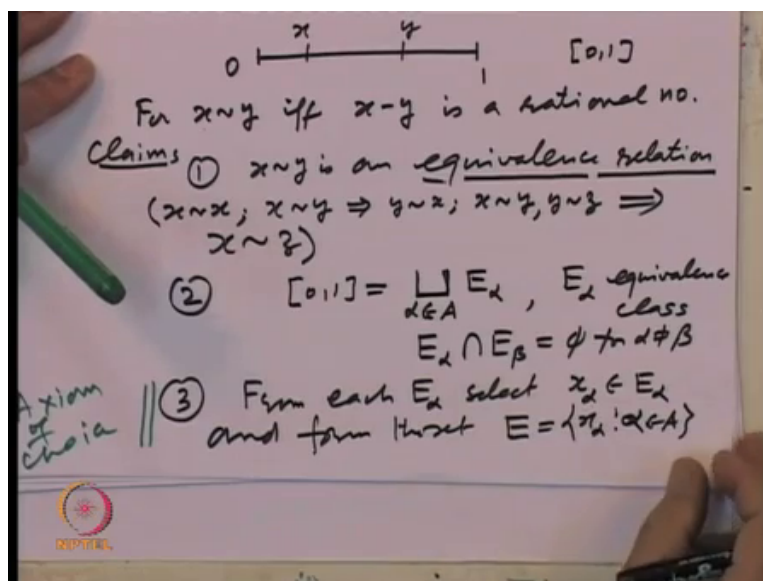 x y
0 1 [0,1]
For x~y iff x-y is a rational no.
Claims ① x~y is an equivalence relation
(x~x; x~y ⇒ y~x; x~y, y~z ⇒
x~z)
② [0,1] = ⊔ E_α, E_α equivalence
α∈A class
E_α ∩ E_β = φ for α≠β
③ From each E_α select x_α ∈ E_α
and form the set E = {x_α : α∈A}
Axiom
of
Choice
NPTEL